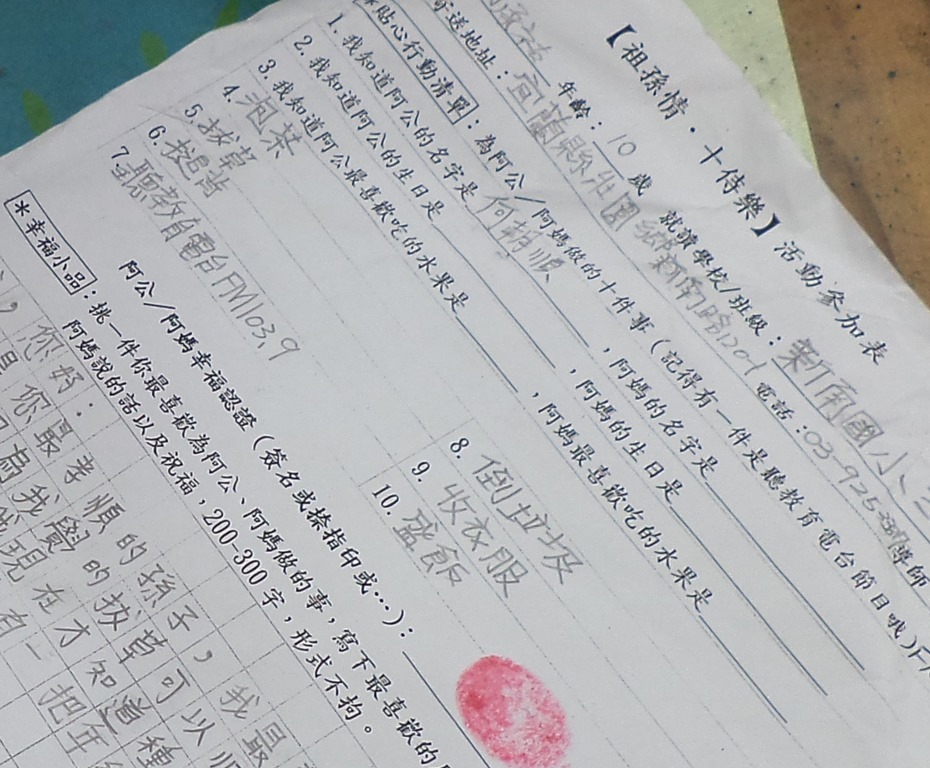 【祖孫情．十侍樂】活動參加表
年齡：10歲 就讀學校/班級：新南國小
寄送地址：宜蘭縣壯圍鄉新南路 電話：03-925 導師
*貼心行動清單：為阿公／阿媽做的十件事（記得有一件是聽教育電台節目哦）
1. 我知道阿公的名字是 何 順，阿媽的名字是
2. 我知道阿公的生日是，阿媽的生日是
3. 我知道阿公最喜歡吃的水果是，阿媽最喜歡吃的水果是
4. 泡茶
5. 拔草
6. 搥背
7. 聽教育電台FM103.9
8. 倒垃圾
9. 收衣服
10. 盛飯
阿公／阿媽幸福認證（簽名或捺指印或…）：
*幸福小品：挑一件你最喜歡為阿公、阿媽做的事，寫下最喜歡的
阿媽說的話以及祝福，200-300字，形式不拘。
，您好：
你最孝順的孫子，我最
為我覺的拔草可以
現在才知道種
有一把年